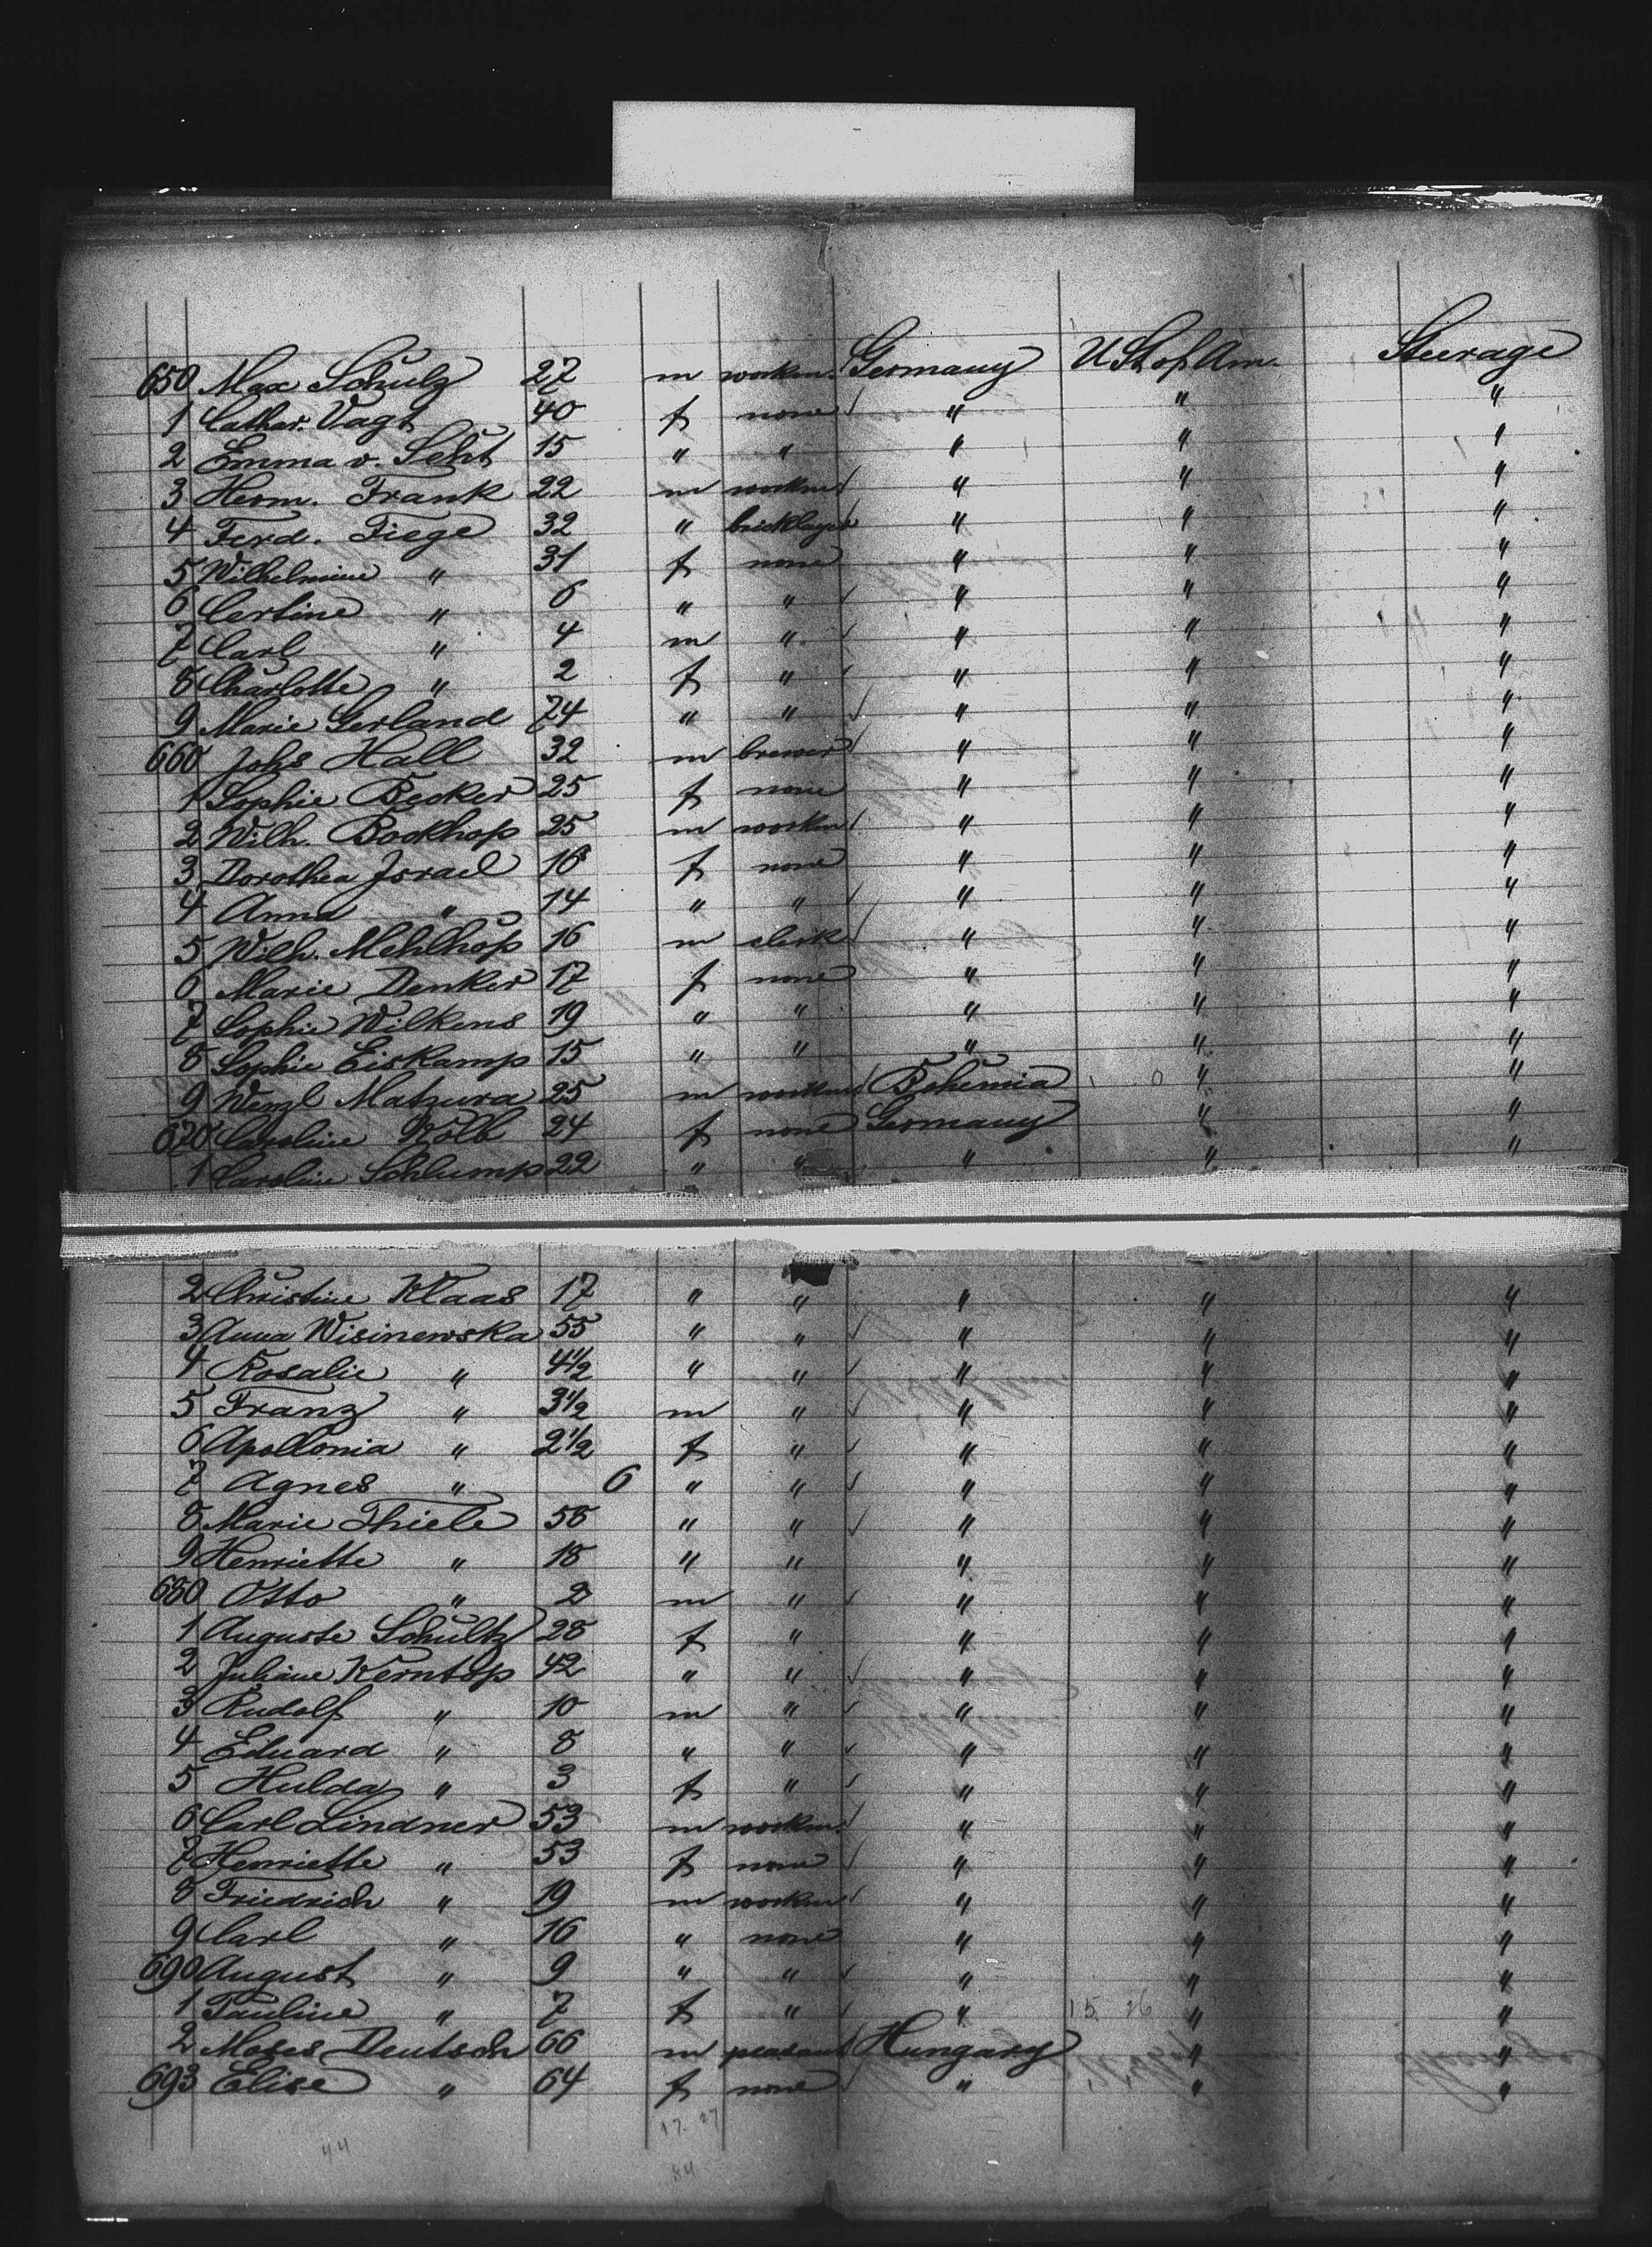 650 Max Schulz 27 m workm. Germany U St of Am. Steerage
1 Cathar. Vagt 40 f none " " "
2 Emma v. Seht 15 " " " " "
3 Herm. Frank 22 m workm " " "
4 Ferd. Fiege 32 " bricklayer " " "
5 Wilhelmine " 31 f none " " "
6 Certine " 6 " " " " "
7 Carl " 4 m " " " "
8 Charlotte " 2 f " " " "
9 Marie Gerland 74 " " " " "
660 Johs Hall 32 m brewer " " "
1 Sophie Becker 25 f none " " "
2 Wilh. Bockhop 25 m workm " " "
3 Dorothea Israel 18 f none " " "
4 Anna " 14 " " " " "
5 Wilh. Mehlhop 16 m clerk " " "
6 Marie Denker 17 f none " " "
7 Sophie Wilkens 19 " " " " "
8 Sophie Eiskamp 15 " " " " "
9 Wenzl Matzura 25 m workm Bohemia " "
670 Caroline Kolb 24 f none Germany " "
1 Caroline Schlump 22 " " " " "
2 Christine Klaas 17 " " " " "
3 Anna Wisinewska 55 " " " " "
4 Rosalie " 4 1/2 " " " " "
5 Franz " 3 1/2 m " " " "
6 Apollonia " 2 1/2 f " " " "
7 Agnes " 6 " " " " "
8 Marie Thiele 58 " " " " "
9 Henriette " 18 " " " " "
680 Otto " 2 m " " " "
1 Auguste Schultz 28 f " " " "
2 Juliane Kerntop 42 " " " " "
3 Rudolf " 10 m " " " "
4 Eduard " 8 " " " " "
5 Hulda " 3 f " " " "
6 Carl Lindner 53 m workm. " " "
7 Henriette " 53 f none " " "
8 Friedrich " 19 m workm " " "
9 Carl " 16 " none " " "
690 August " 9 " " " " "
1 Pauline " 7 f " " 15. 26 " "
2 Moses Deutsch 66 m peasant Hungary " "
693 Elise " 64 f none " " "
17. 27
44